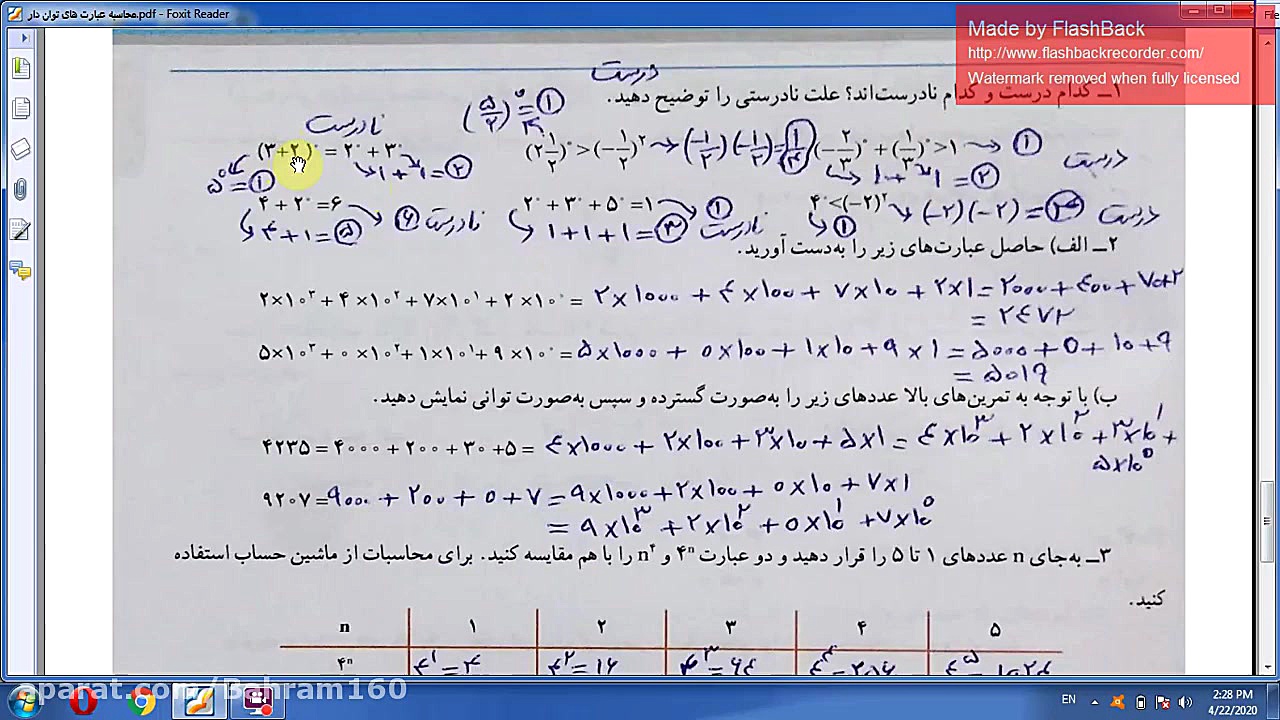 محاسبه عبارت های توان دار.pdf - Foxit Reader
File
Made by FlashBack
http://www.flashbackrecorder.com/
Watermark removed when fully licensed
درست
۱ــ کدام درست و کدام نادرست‌اند؟ علت نادرستی را توضیح دهید.
(۵/۲)° = ۱
نادرست
(۳+۲)° = ۲° + ۳°
۵° = ۱
۱ + ۱ = ۲
(۲ ۱/۲)° > (−۱/۲)² → (−۱/۲)(−۱/۲) = ۱/۴
(−۲/۳)° + (۱/۳)° > ۱ → ۱
۱ + ۱ = ۲
درست
۴ + ۲° = ۶ → ۶ نادرست
۴ + ۱ = ۵
۲° + ۳° + ۵° = ۱ → ۱
۱ + ۱ + ۱ = ۳ نادرست
۴° < (−۲)² → (−۲)(−۲) = ۴ درست
۱
۲ــ الف) حاصل عبارت‌های زیر را به‌دست آورید.
۲×۱۰³ + ۴×۱۰² + ۷×۱۰¹ + ۲×۱۰° = ۲×۱۰۰۰ + ۴×۱۰۰ + ۷×۱۰ + ۲×۱ = ۲۰۰۰ + ۴۰۰ + ۷۰+۲
= ۲۴۷۲
۵×۱۰³ + ۰×۱۰² + ۱×۱۰¹ + ۹×۱۰° = ۵×۱۰۰۰ + ۰×۱۰۰ + ۱×۱۰ + ۹×۱ = ۵۰۰۰ + ۰ + ۱۰ + ۹
= ۵۰۱۹
ب) با توجه به تمرین‌های بالا عددهای زیر را به‌صورت گسترده و سپس به‌صورت توانی نمایش دهید.
۴۲۳۵ = ۴۰۰۰ + ۲۰۰ + ۳۰ +۵ = ۴×۱۰۰۰ + ۲×۱۰۰ + ۳×۱۰ + ۵×۱ = ۴×۱۰³ + ۲×۱۰² + ۳×۱۰¹ +
۵×۱۰°
۹۲۰۷ = ۹۰۰۰ + ۲۰۰ + ۰ + ۷ = ۹×۱۰۰۰ + ۲×۱۰۰ + ۰×۱۰ + ۷×۱
= ۹×۱۰³ + ۲×۱۰² + ۰×۱۰¹ + ۷×۱۰°
۳ــ به‌جای n عددهای ۱ تا ۵ را قرار دهید و دو عبارت ۴ⁿ و n⁴ را با هم مقایسه کنید. برای محاسبات از ماشین حساب استفاده
کنید.
n ۱ ۲ ۳ ۴ ۵
۴ⁿ ۴¹=۴ ۴²=۱۶ ۴³=۶۴ ۴⁴=۲۵۶ ۴⁵=۱۰۲۴
aparat.com/Bahram160
EN
2:28 PM
4/22/2020